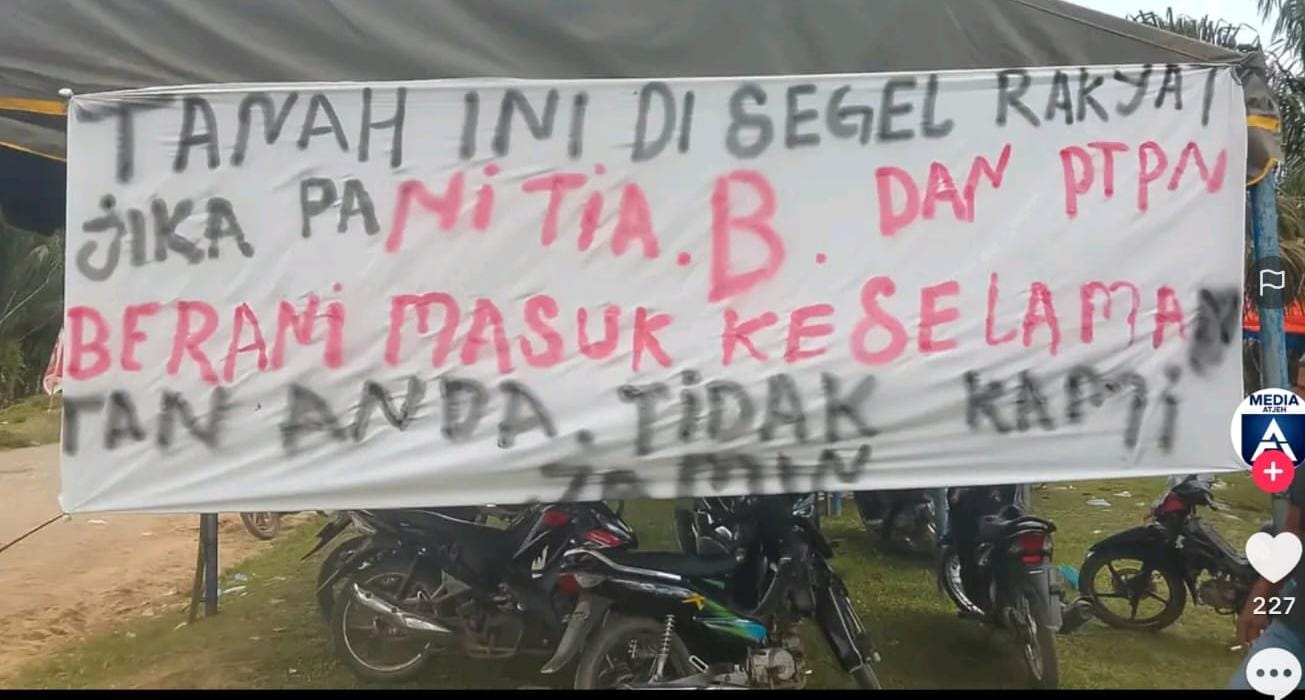 TANAH INI DI SEGEL RAKYAT
JIKA PANiTiA.B. DAN PTPN
BERANi MASUK KESELAMA
TAN ANDA. TiDAK KAMi
JAMIN
MEDIA
ATJEH
227